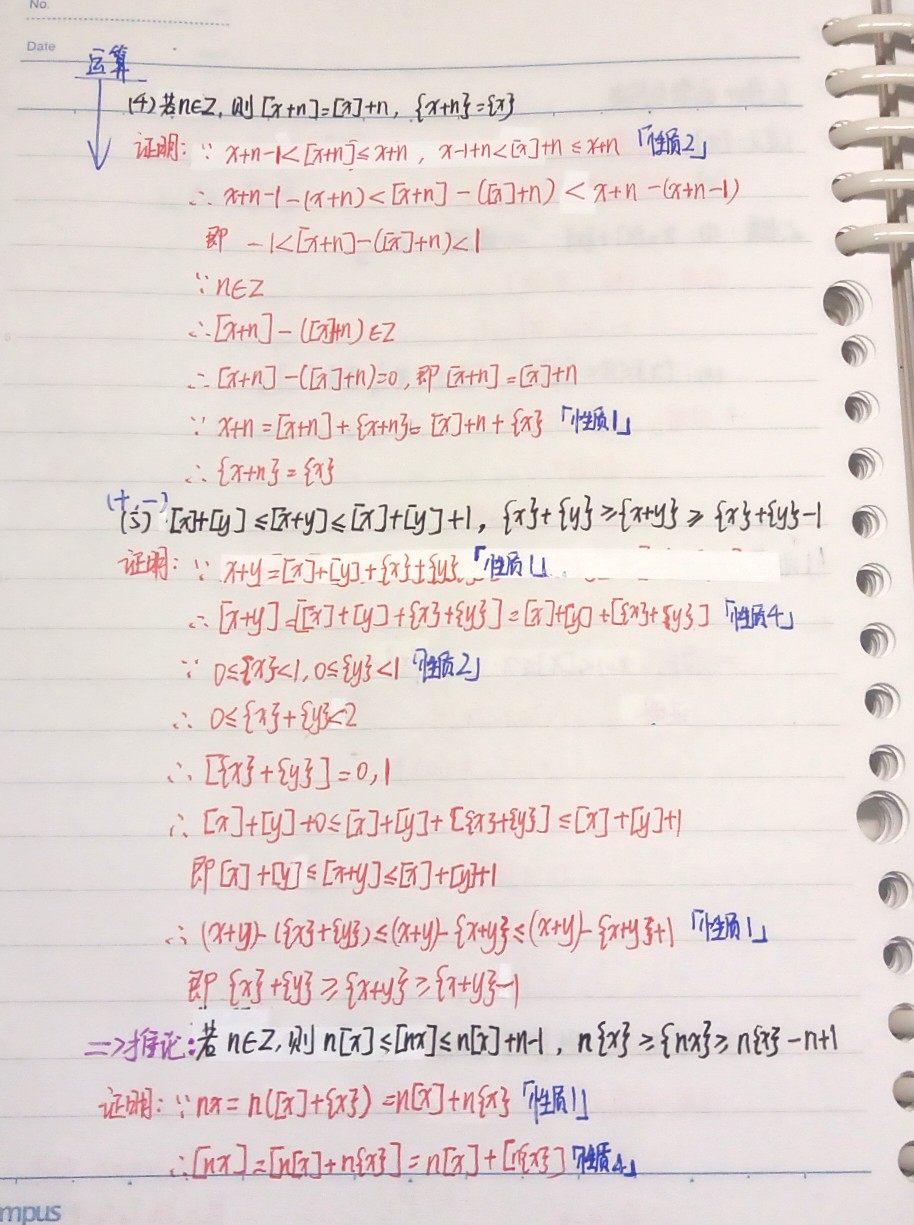 No.
Date
运算
(4) 若n∈Z, 则 [x+n]=[x]+n, {x+n}={x}
证明: ∵ x+n-1<[x+n]≤x+n, x-1+n<[x]+n≤x+n 「性质2」
∴ x+n-1-(x+n)<[x+n]-([x]+n)<x+n-(x+n-1)
即 -1<[x+n]-([x]+n)<1
∵ n∈Z
∴ [x+n]-([x]+n)∈Z
∴ [x+n]-([x]+n)=0, 即 [x+n]=[x]+n
∵ x+n=[x+n]+{x+n}=[x]+n+{x} 「性质1」
∴ {x+n}={x}
(+,-)
(5) [x]+[y]≤[x+y]≤[x]+[y]+1, {x}+{y}≥{x+y}≥{x}+{y}-1
证明: ∵ x+y=[x]+[y]+{x}+{y} 「性质1」
∴ [x+y]=[[x]+[y]+{x}+{y}]=[x]+[y]+[{x}+{y}] 「性质4」
∵ 0≤{x}<1, 0≤{y}<1 「性质2」
∴ 0≤{x}+{y}<2
∴ [{x}+{y}]=0,1
∴ [x]+[y]+0≤[x]+[y]+[{x}+{y}]≤[x]+[y]+1
即 [x]+[y]≤[x+y]≤[x]+[y]+1
∴ (x+y)-({x}+{y})≤(x+y)-{x+y}≤(x+y)-{x+y}+1 「性质1」
即 {x}+{y}≥{x+y}≥{x+y}-1
=>推论: 若 n∈Z, 则 n[x]≤[nx]≤n[x]+n-1, n{x}≥{nx}≥n{x}-n+1
证明: ∵ nx=n([x]+{x})=n[x]+n{x} 「性质1」
∴ [nx]=[n[x]+n{x}]=n[x]+[n{x}] 「性质4」
mpus